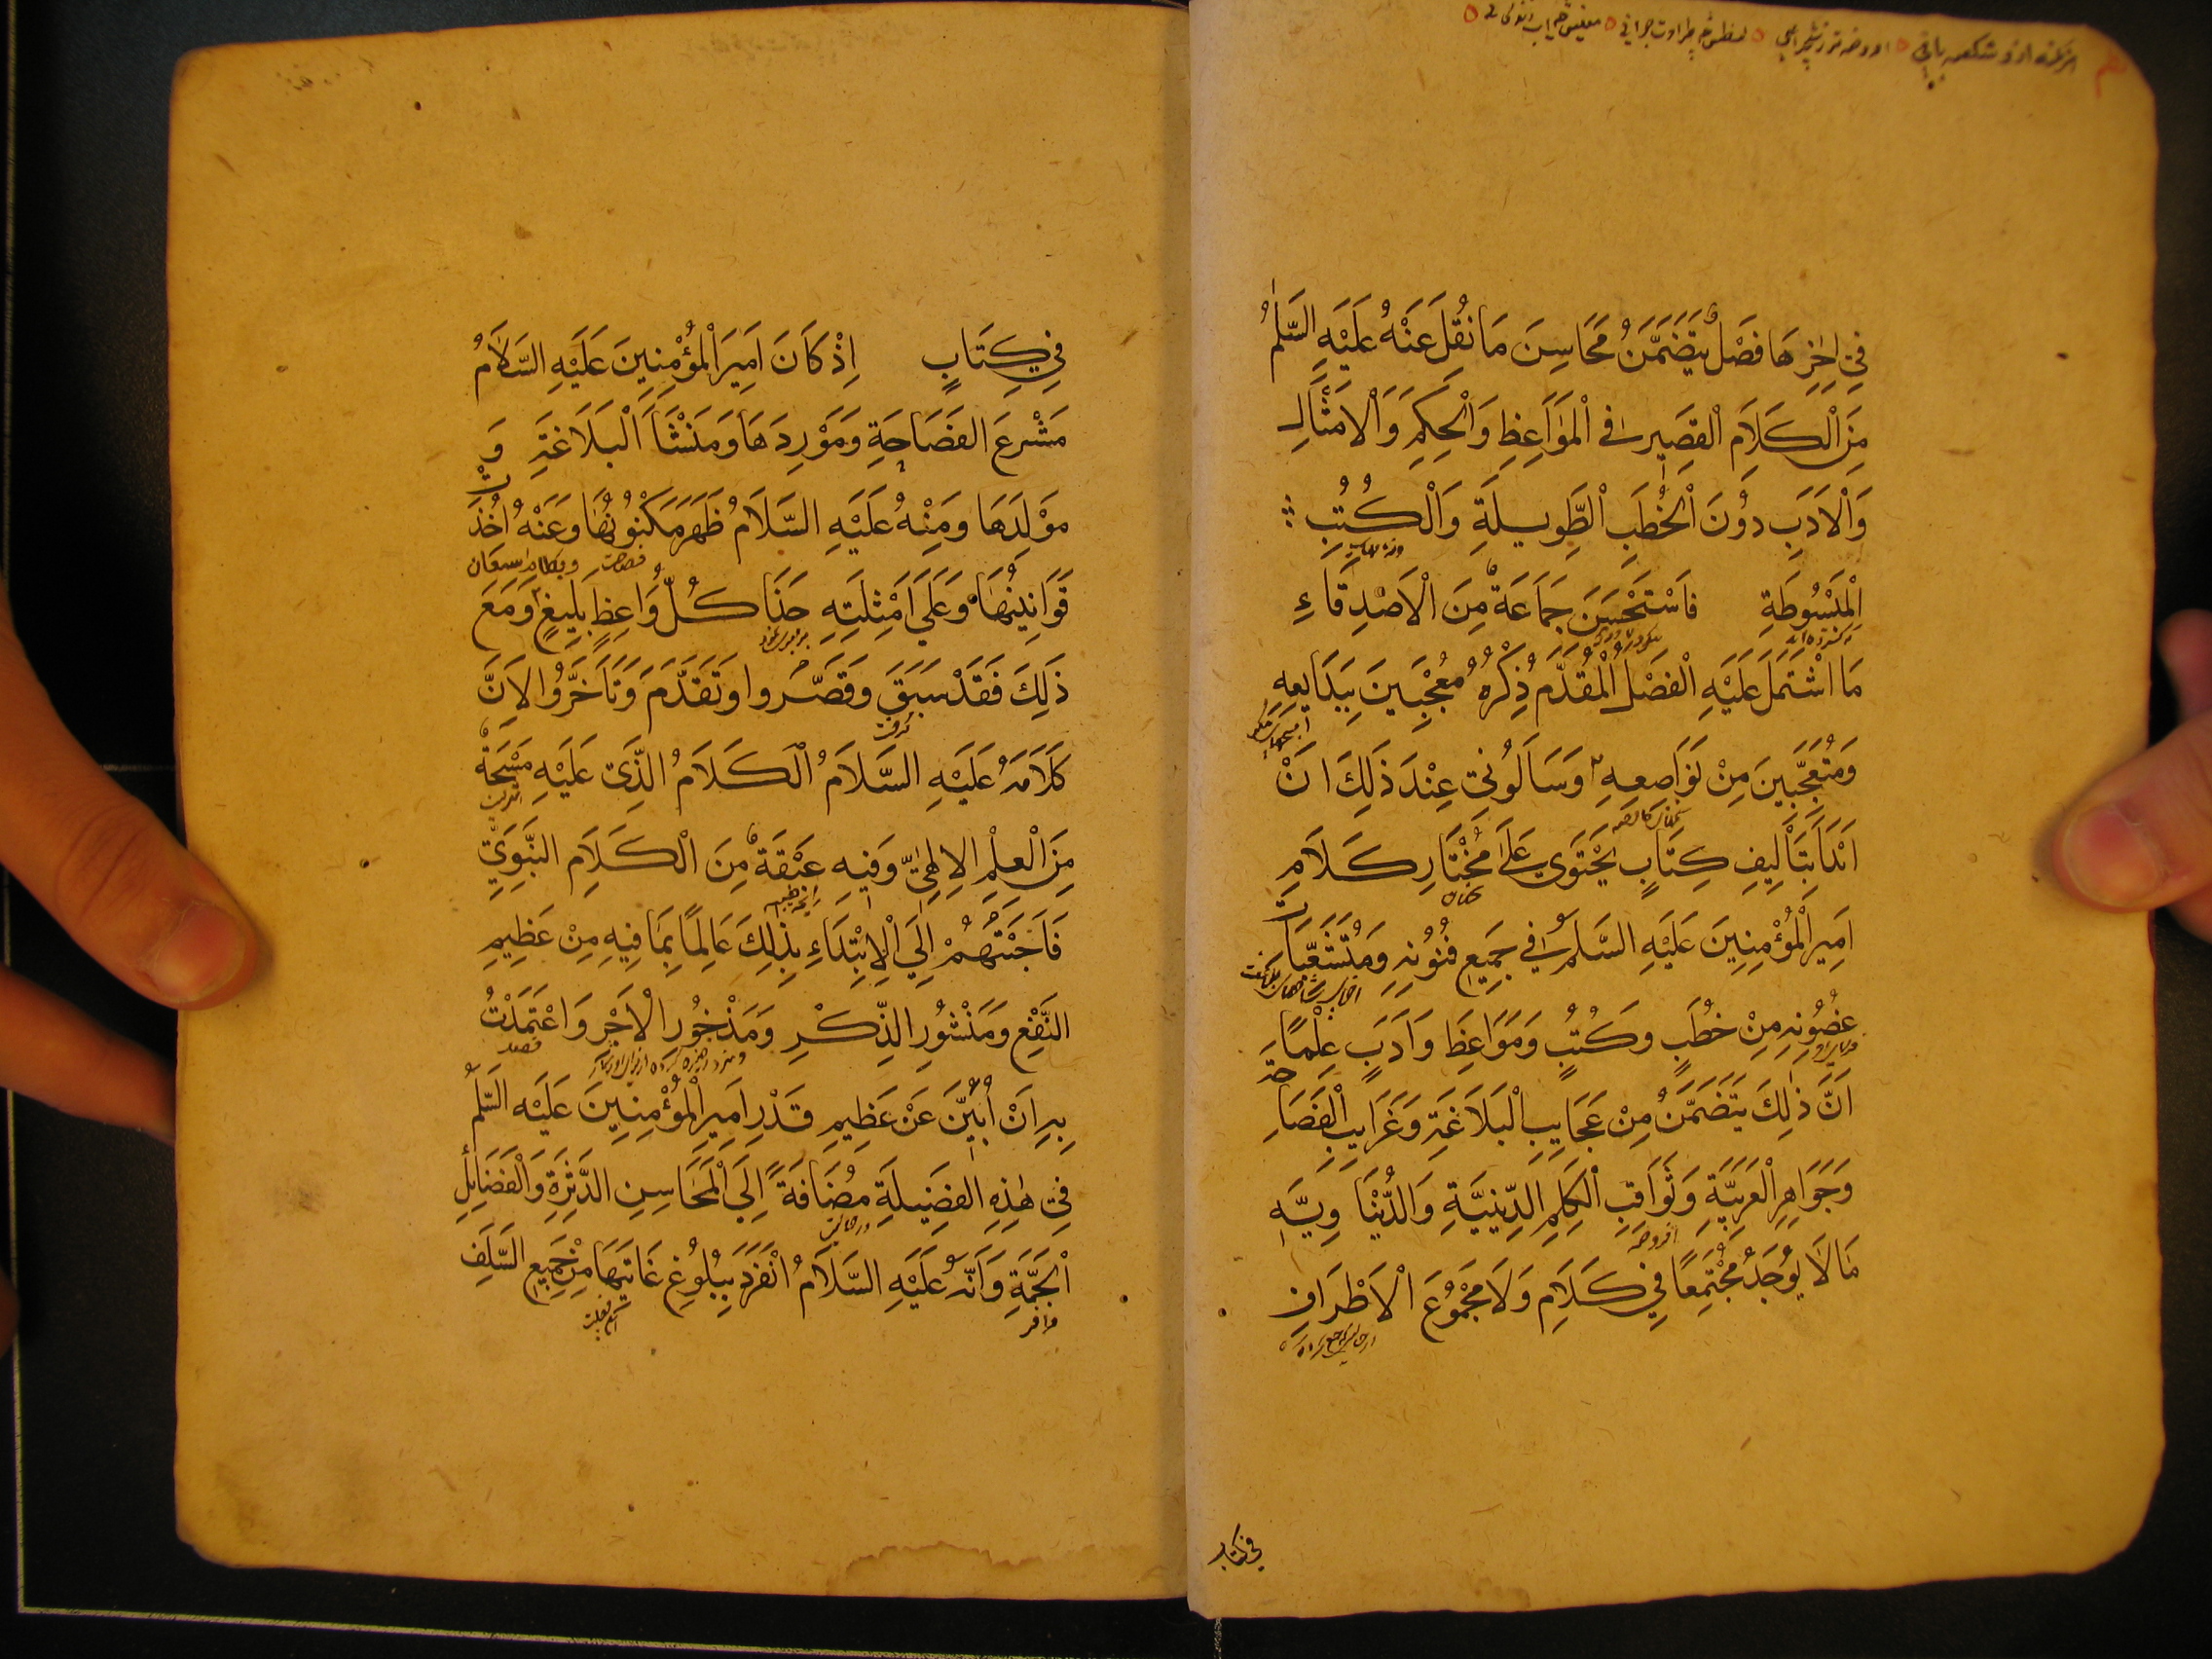 فِي اٰخِرِهَا فَصْلٌ يَتَضَمَّنُ مَحَاسِنَ مَا نُقِلَ عَنْهُ عَلَيْهِ السَّلٰمُ
مِنَ الْكَلَامِ الْقَصِيرِ فِي الْمَوَاعِظِ وَالْحِكَمِ وَالْاَمْثَالِ
وَالْاَدَبِ دُونَ الْخُطَبِ الطَّوِيلَةِ وَالْكُتُبِ
الْمَبْسُوطَةِ فَاسْتَحْسَنَ جَمَاعَةٌ مِنَ الْاَصْدِقَاءِ
مَا اشْتَمَلَ عَلَيْهِ الْفَصْلُ الْمُقَدَّمُ ذِكْرُهُ مُعْجَبِينَ بِبَدَايِعِهِ
وَمُتَعَجِّبِينَ مِنْ نَوَاصِعِهِ وَسَاَلُونِي عِنْدَ ذٰلِكَ اَنْ
اَبْدَاَ بِتَاْلِيفِ كِتَابٍ يَحْتَوِي عَلَى مُخْتَارِ كَلَامِ
اَمِيرِ الْمُؤْمِنِينَ عَلَيْهِ السَّلٰمُ فِي جَمِيعِ فُنُونِهِ وَمُتَشَعِّبَاتِ
غُصُونِهِ مِنْ خُطَبٍ وَكُتُبٍ وَمَوَاعِظَ وَاَدَبٍ عِلْمًا
اَنَّ ذٰلِكَ يَتَضَمَّنُ مِنْ عَجَايِبِ الْبَلَاغَةِ وَغَرَايِبِ الْفَصَاحَةِ
وَجَوَاهِرِ الْعَرَبِيَّةِ وَثَوَاقِبِ الْكَلِمِ الدِّينِيَّةِ وَالدُّنْيَاوِيَّةِ
مَا لَا يُوجَدُ مُجْتَمِعًا فِي كَلَامٍ وَلَا مَجْمُوعَ الْاَطْرَافِ
في كتاب
فِي كِتَابٍ اِذْ كَانَ اَمِيرُ الْمُؤْمِنِينَ عَلَيْهِ السَّلَامُ
مَشْرَعَ الْفَصَاحَةِ وَمَوْرِدَهَا وَمَنْشَاَ الْبَلَاغَةِ وَ
مَوْلِدَهَا وَمِنْهُ عَلَيْهِ السَّلَامُ ظَهَرَ مَكْنُونُهَا وَعَنْهُ اُخِذَتْ
قَوَانِينُهَا وَعَلَى اَمْثِلَتِهِ حَذَا كُلُّ وَاعِظٍ بَلِيغٍ وَمَعَ
ذٰلِكَ فَقَدْ سَبَقَ وَقَصَّرُوا وَتَقَدَّمَ وَتَاَخَّرُوا لِاَنَّ
كَلَامَهُ عَلَيْهِ السَّلَامُ الْكَلَامُ الَّذِي عَلَيْهِ مَسْحَةٌ
مِنَ الْعِلْمِ الْاِلٰهِيِّ وَفِيهِ عَبْقَةٌ مِنَ الْكَلَامِ النَّبَوِيِّ
فَاَجَبْتُهُمْ اِلَى الْاِبْتِدَاءِ بِذٰلِكَ عَالِمًا بِمَا فِيهِ مِنْ عَظِيمِ
النَّفْعِ وَمَنْشُورِ الذِّكْرِ وَمَذْخُورِ الْاَجْرِ وَاعْتَمَدْتُ
بِهِ اَنْ اُبَيِّنَ عَنْ عَظِيمِ قَدْرِ اَمِيرِ الْمُؤْمِنِينَ عَلَيْهِ السَّلٰمُ
فِي هٰذِهِ الْفَضِيلَةِ مُضَافَةً اِلَى الْمَحَاسِنِ الدَّثِرَةِ وَالْفَضَائِلِ
الْجَمَّةِ وَاَنَّهُ عَلَيْهِ السَّلَامُ انْفَرَدَ بِبُلُوغِ غَايَتِهَا مِنْ جَمِيعِ السَّلَفِ